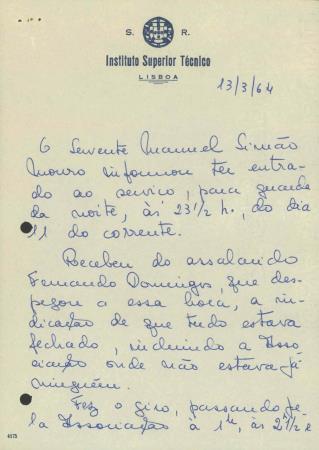 S. R.
Instituto Superior Técnico
LISBOA
13/3/64
O Servente Manuel Simão
Mouro informou ter entra-
do ao serviço, para guarda
da noite, às 23 1/2 h., do dia
11 do corrente.
Recebeu do assalariado
Fernando Domingos, que des-
pegou a essa hora, a in-
dicação de que tudo estava
fechado, incluindo a Asso-
ciação onde não estava já
ninguém.
Fez o giro, passando pe-
la Associação à 1h, às 2 1/2 e
4175